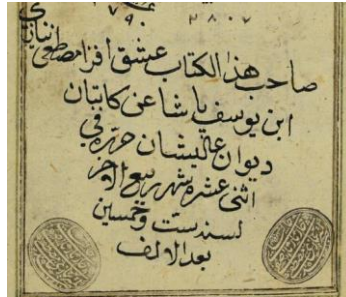 ٧٩٠ ٢٨٠٧
صاحب هذا الكتاب عشق افزا مصطفى
ابن يوسف پاشا عن كاتبان
ديوان عاليشان حرّره في
اثنى عشره شهر ربيع الاخر
لسنه ست وخمسين
بعد الالف